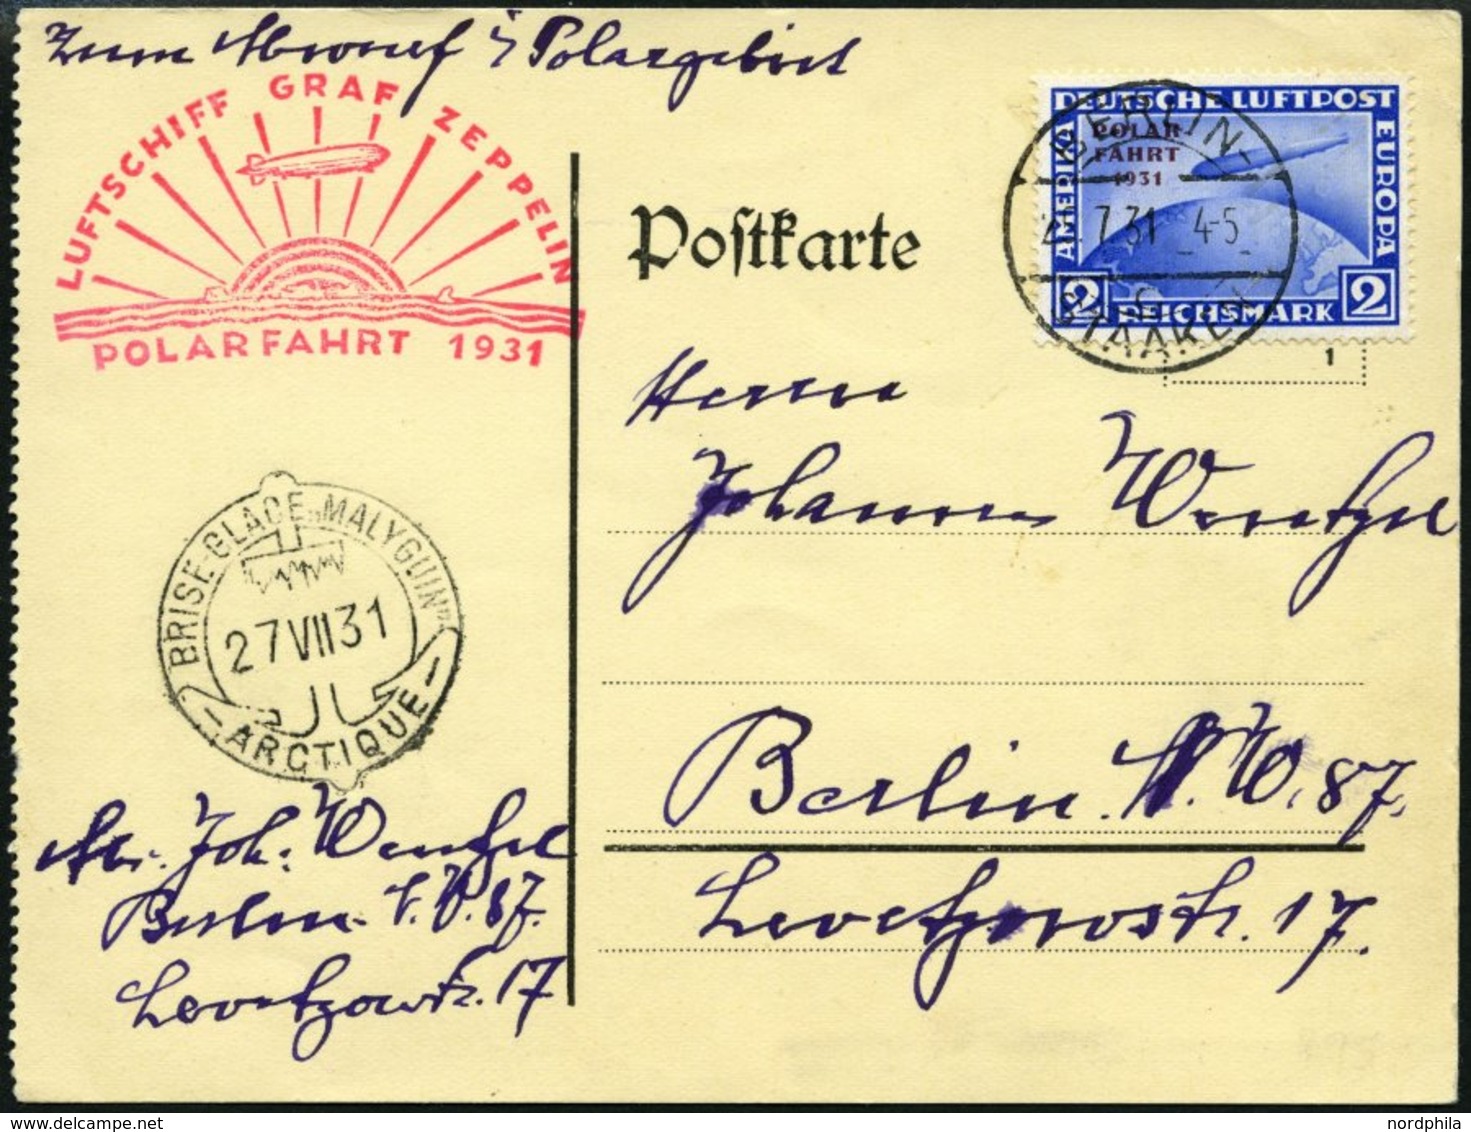 Zum Abwurf i Polargebiet
LUFTSCHIFF GRAF ZEPPELIN
POLARFAHRT 1931
DEUTSCHE LUFTPOST
EUROPA
AMERIKA
POLAR-
FAHRT
1931
2 REICHSMARK 2
BERLIN-
7.31 4-5
STAAKEN
1
Postkarte
Herrn
Johannes Wentzel
Berlin N.W. 87.
Levetzowstr. 17.
BRISE-GLACE „MALYGUIN"
27 VII 31
— ARCTIQUE —
Abs. Joh. Wentzel
Berlin N.W. 87.
Levetzowstr. 17
nordphila
© delcampe.net